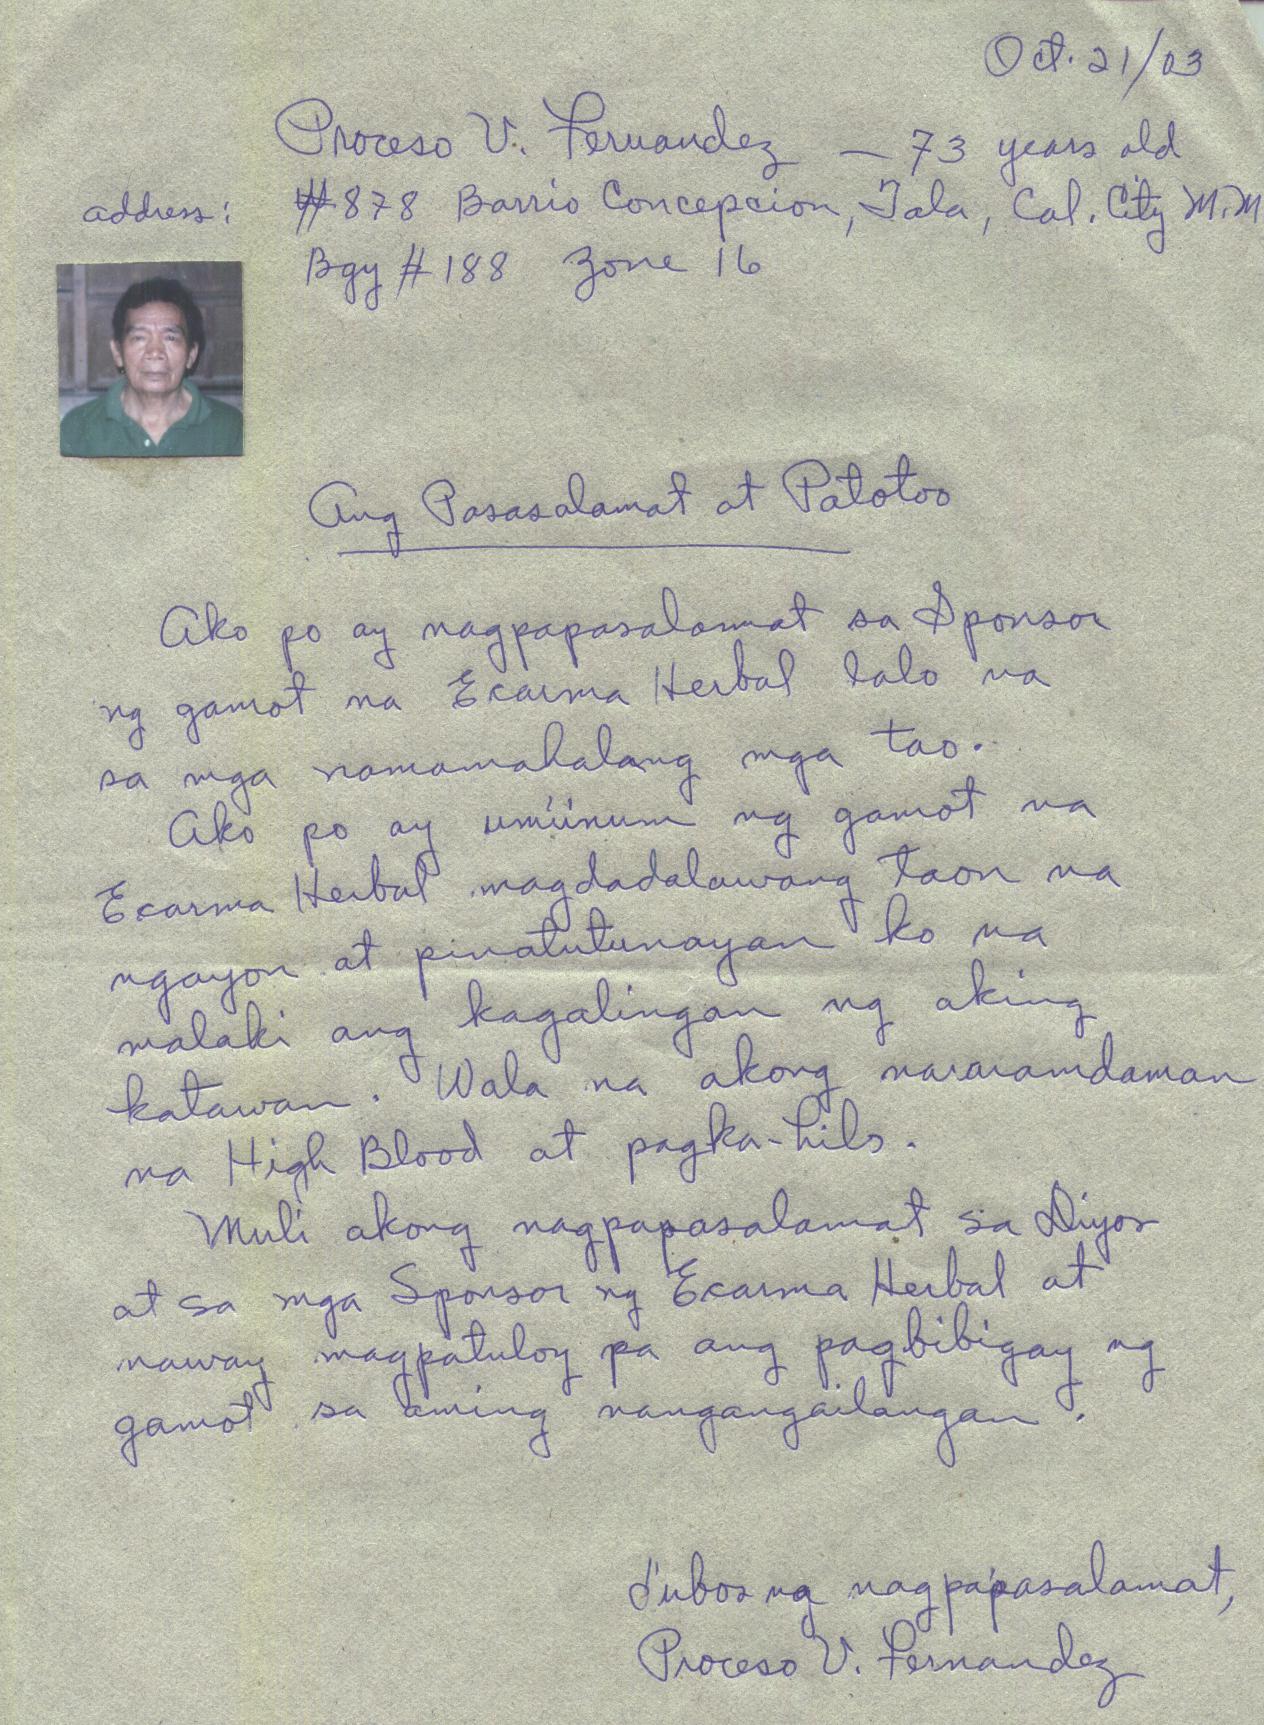 Oct. 21/03
Proceso V. Fernandez — 73 years old
address: #878 Barrio Concepcion, Tala, Cal. City M.M
Bgy # 188 Zone 16
Ang Pasasalamat at Patotoo
Ako po ay nagpapasalamat sa Sponsor
ng gamot na Ecarma Herbal lalo na
sa mga namamahalang mga tao.
Ako po ay umiinum ng gamot na
Ecarma Herbal magdadalawang taon na
ngayon at pinatutunayan ko na
malaki ang kagalingan ng aking
katawan. Wala na akong nararamdaman
na High Blood at pagka-hilo.
Muli akong nagpapasalamat sa Diyos
at sa mga Sponsor ng Ecarma Herbal at
naway magpatuloy pa ang pagbibigay ng
gamot sa aming nangangailangan.
Lubos ng nagpapasalamat,
Proceso V. Fernandez